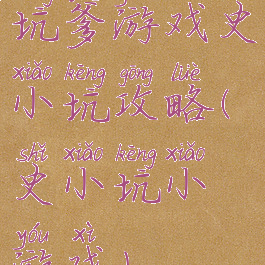 坑爹游戏史
xiǎo kēng gōng lüè
小坑攻略(
shǐ xiǎo kēng xiǎo
史小坑小
yóu xì
游戏)